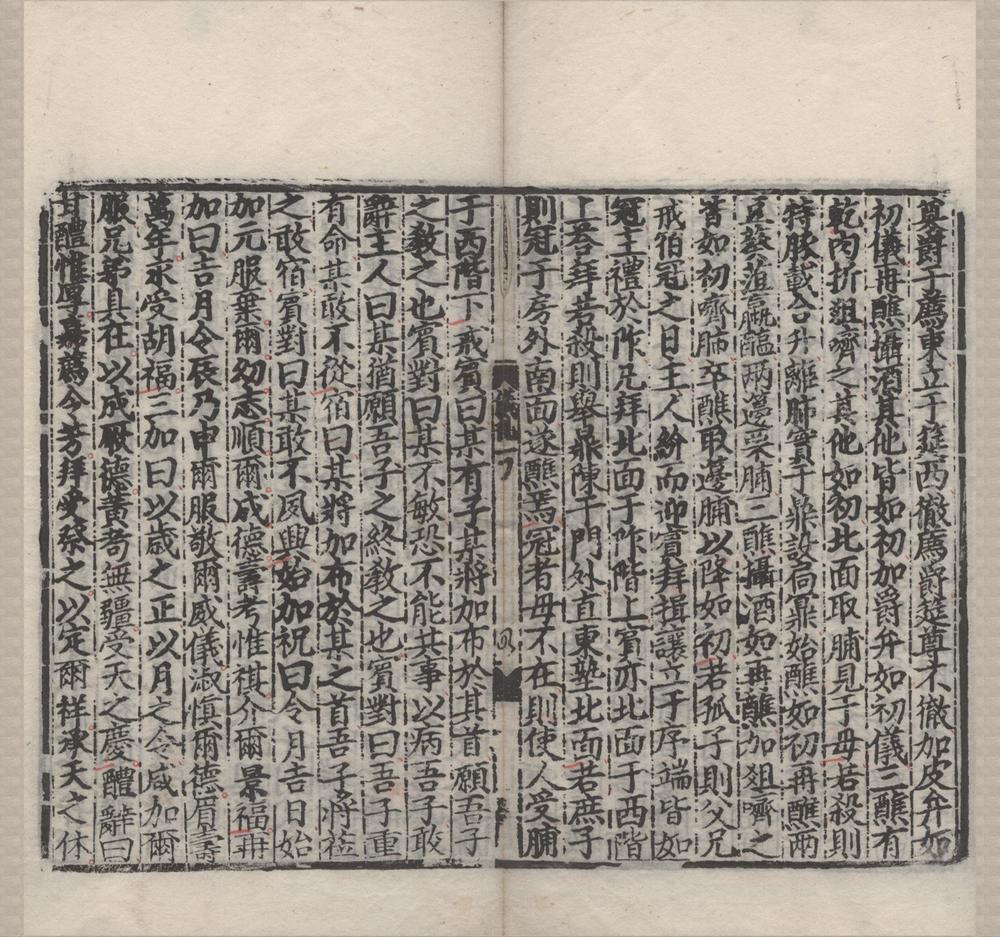 奠爵于薦東立于筵西徹薦爵筵尊不徹加皮弁如
初儀再醮攝酒其他皆如初加爵弁如初儀三醮有
乾肉折俎嚌之其他如初北面取脯見于母若殺則
特豚載合升離肺實于鼎設扃鼏始醮如初再醮兩
豆葵菹蠃醢兩籩栗脯三醮攝酒如再醮加俎嚌之
皆如初嚌肺卒醮取籩脯以降如初若孤子則父兄
戒宿冠之日主人紒而迎賓拜揖讓立于序端皆如
冠主禮於阼凡拜北面于阼階上賓亦北面于西階
上荅拜若殺則舉鼎陳于門外直東塾北面若庶子
則冠于房外南面遂醮焉冠者母不在則使人受脯
儀禮一
于西階下戒賓曰某有子某將加布於其首願吾子
之敎之也賓對曰某不敏恐不能共事以病吾子敢
辭主人曰某猶願吾子之終敎之也賓對曰吾子重
有命某敢不從宿曰某將加布於某之首吾子將莅
之敢宿賓對曰某敢不夙興始加祝曰令月吉日始
加元服棄爾幼志順爾成德壽考惟祺介爾景福再
加曰吉月令辰乃申爾服敬爾威儀淑愼爾德眉壽
萬年永受胡福三加曰以歲之正以月之令咸加爾
服兄弟具在以成厥德黃耇無疆受天之慶醴辭曰
甘醴惟厚嘉薦令芳拜受祭之以定爾祥承天之休